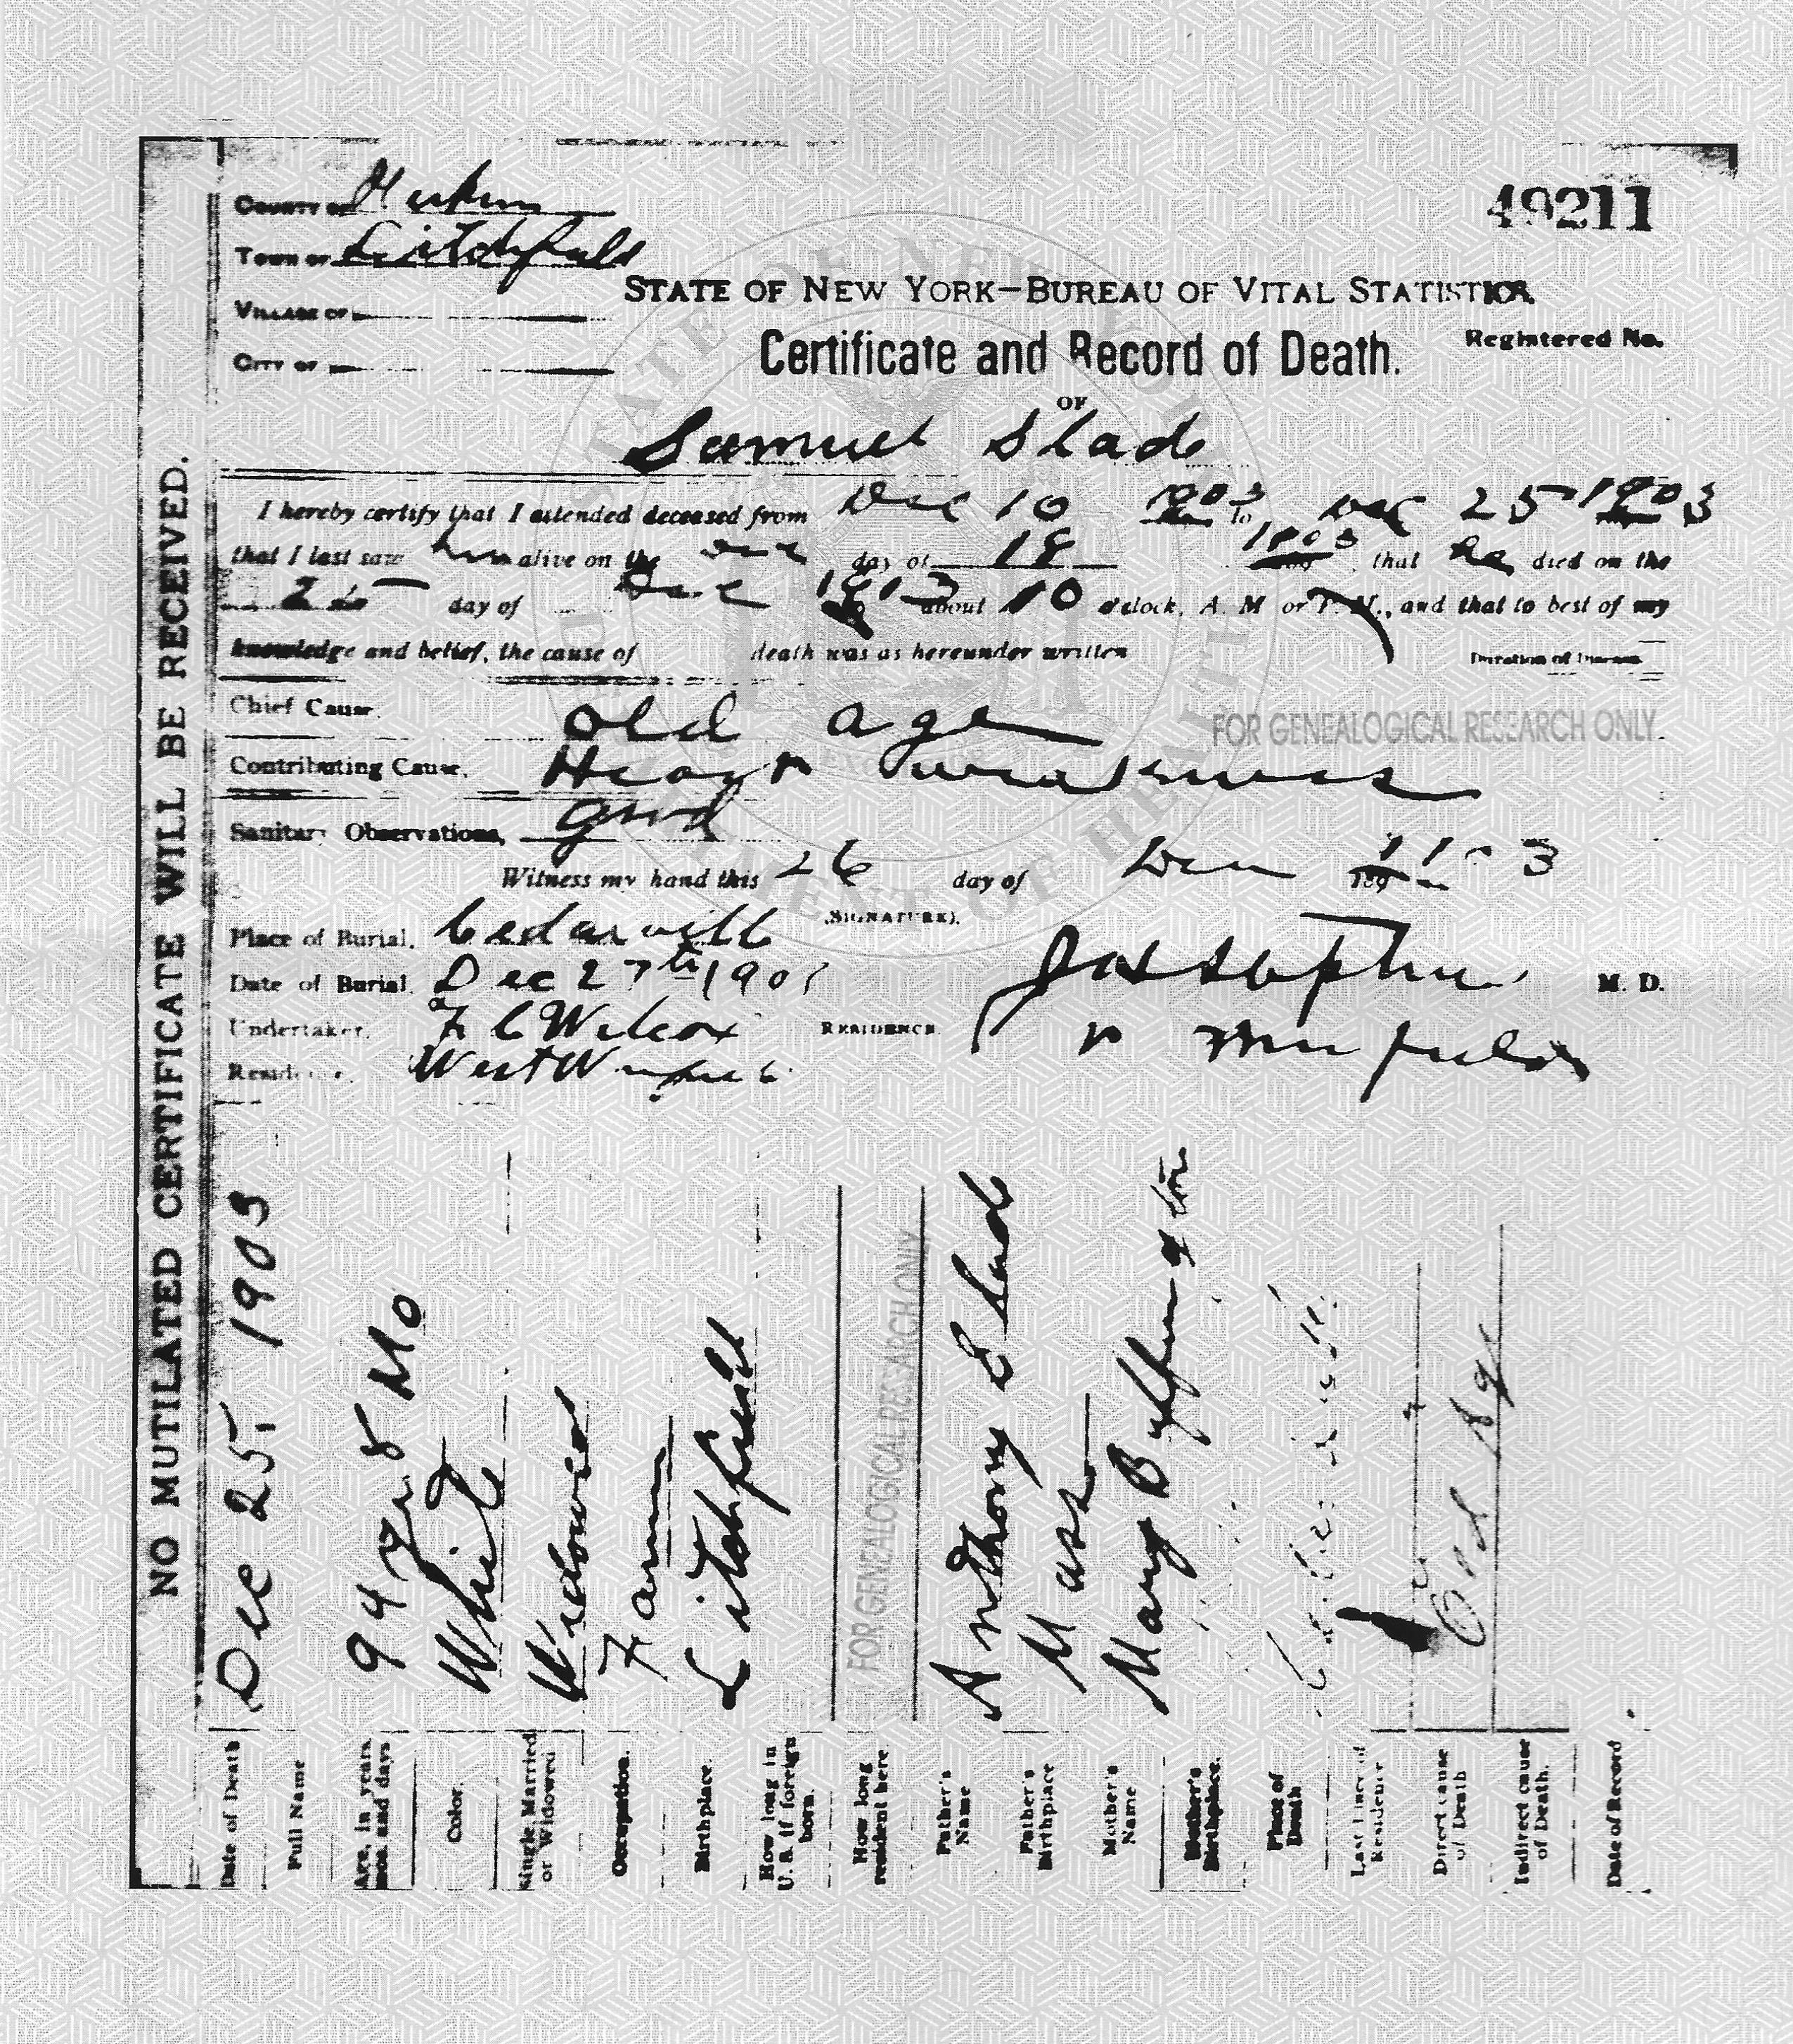 49211
COUNTY OF Herkimer
TOWN OF Litchfield
VILLAGE OF
CITY OF
STATE OF NEW YORK—BUREAU OF VITAL STATISTICS
Registered No.
Certificate and Record of Death.
OF
Samuel Slade
I hereby certify that I attended deceased from Dec 10 1903 to Dec 25 1903
that I last saw him alive on the Dec day of 18 1903 that he died on the
25 day of Dec 1903 about 10 o'clock, A. M or P. M., and that to best of my
knowledge and belief, the cause of death was as hereunder written
Duration of Disease
Chief Cause. Old age
FOR GENEALOGICAL RESEARCH ONLY
Contributing Cause. Heart weakness
Sanitary Observations, good
Witness my hand this 26 day of Dec 1903
Place of Burial. Cedarville (SIGNATURE).
Date of Burial. Dec 27th 190 M. D.
Undertaker. F C Wilcox RESIDENCE.
Residence. West Winfield
NO MUTILATED CERTIFICATE WILL BE RECEIVED.
Date of Death Dec 25, 1903
Full Name
Age, in years, mos. and days 94 yr 8 Mo
Color. White
Single, Married or Widowed Widowed
Occupation. Farmer
Birthplace. Litchfield
How long in U. S. if foreign born.
How long resident here
FOR GENEALOGICAL RESEARCH ONLY
Father's Name Anthony Slade
Father's Birthplace Mass
Mother's Name Mary Buffington
Mother's Birthplace.
Place of Death
Last Place of Residence
Direct cause of Death Old Age
Indirect cause of Death.
Date of Record
STATE OF NEW YORK
DEPARTMENT OF HEALTH